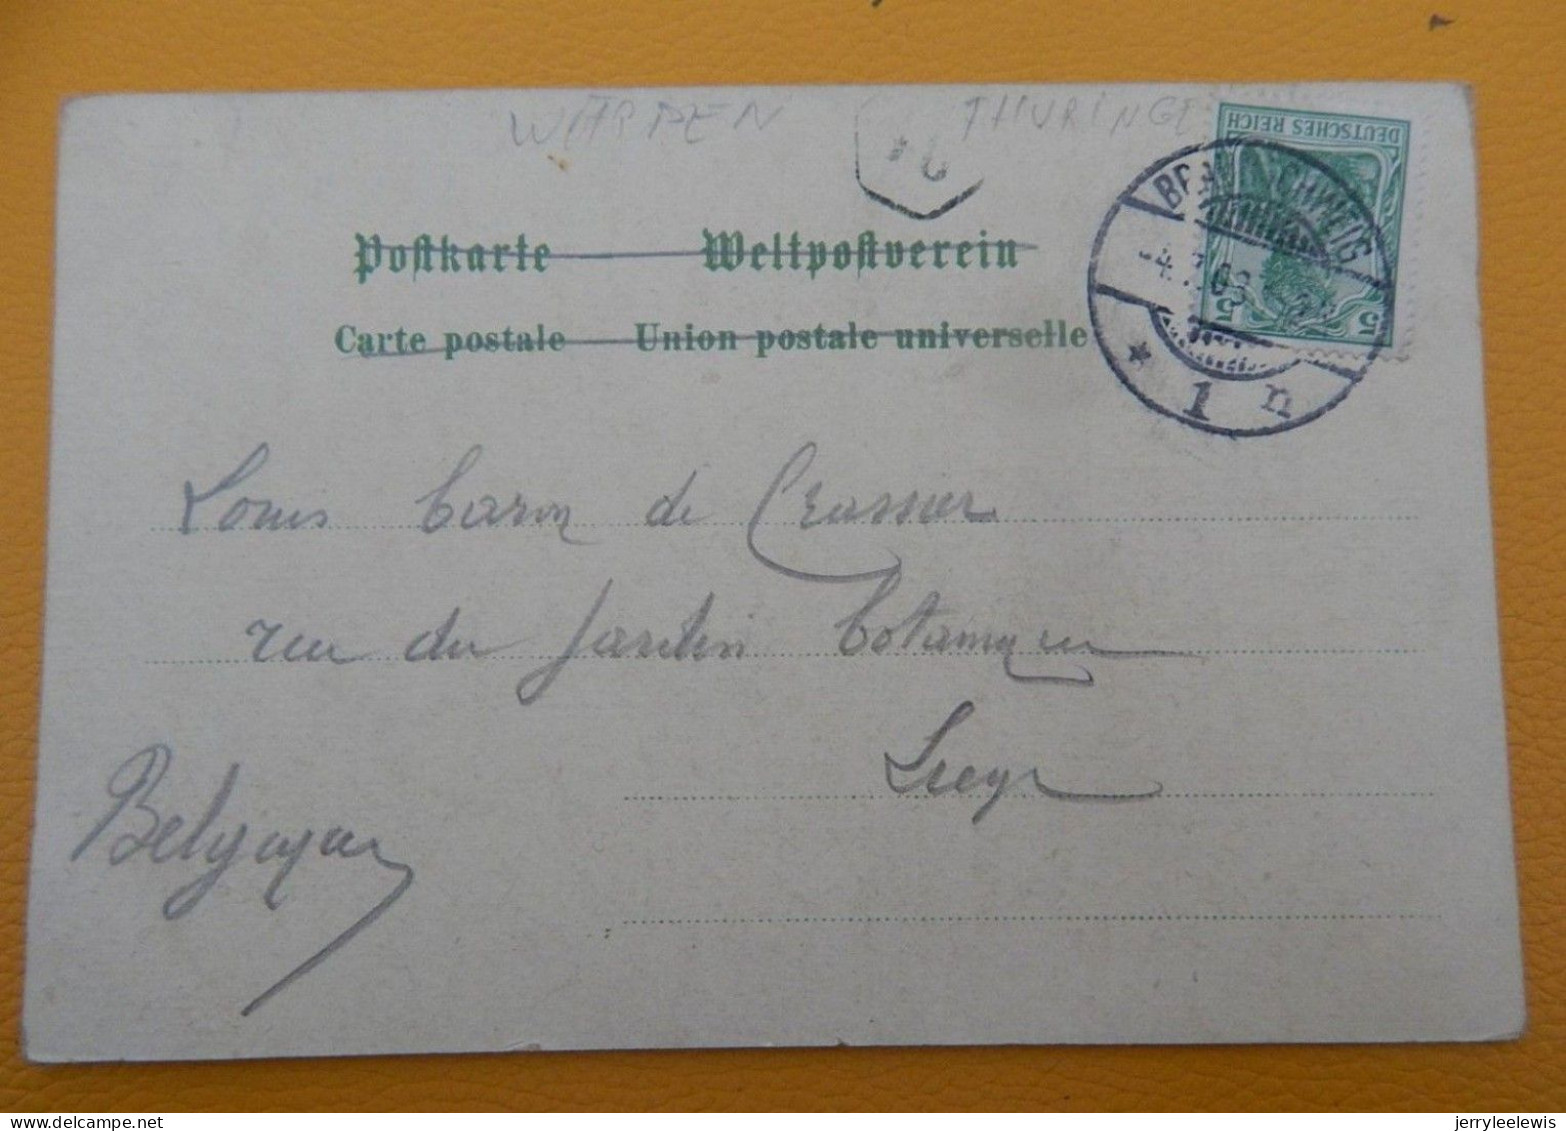 WAPPEN THURINGE
DEUTSCHES REICH
5 5
BRAUNSCHWEIG
-4.7.03
* 1 n
Postkarte Weltpostverein
Carte postale Union postale universelle
Louis baron de Crassier
rue du Jardin botanique
Liege
Belgique
jerryleelewis